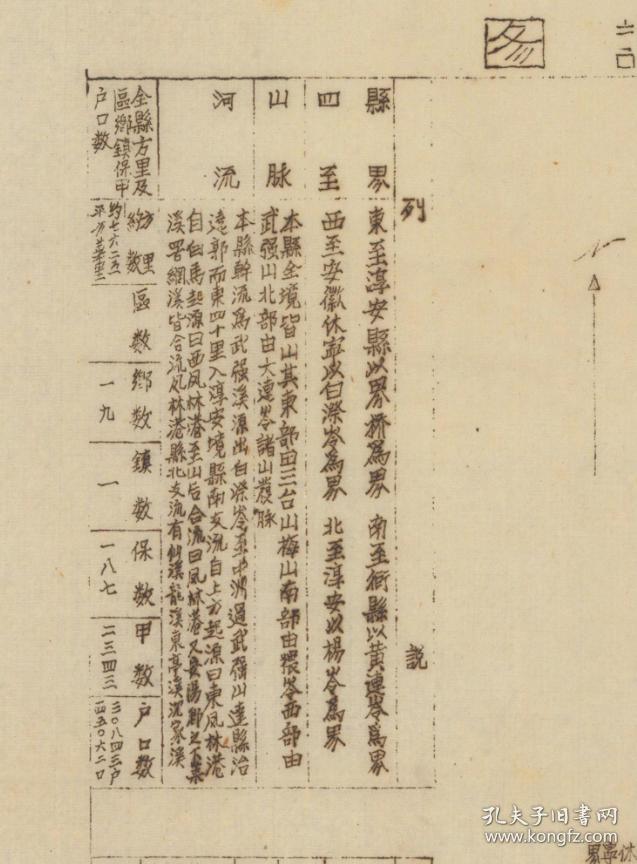 圖
列說
縣界四至
東至淳安縣以界橋為界 南至衢縣以黃連岺為界
西至安徽休寧以白漈岺為界 北至淳安以楊岺為界
山脉
本縣全境皆山其東部由三台山梅山南部由猥岺西部由
武强山北部由大連岺諸山發脉
河流
本縣幹流為武强溪源出白漈岺至中洲過武强山達縣治
遶郭而東四十里入淳安境縣南支流自上方起源曰東凤林港
自白馬起源曰西凤林港至山后合流曰凤林港又安陽鄉之下葉
溪署網溪皆合流凤林港縣北支流有仙溪龍溪東亭溪沈家溪
全縣方里及
區鄉鎮保甲
户口數
方里
約數
約七六二五
平方華里
區數
鄉數
一九
鎮數
一
保數
一八七
甲數
二三四三
户口數
三〇八四三户
一四五〇六二口
休寧界
孔夫子旧书网
www.kongfz.com